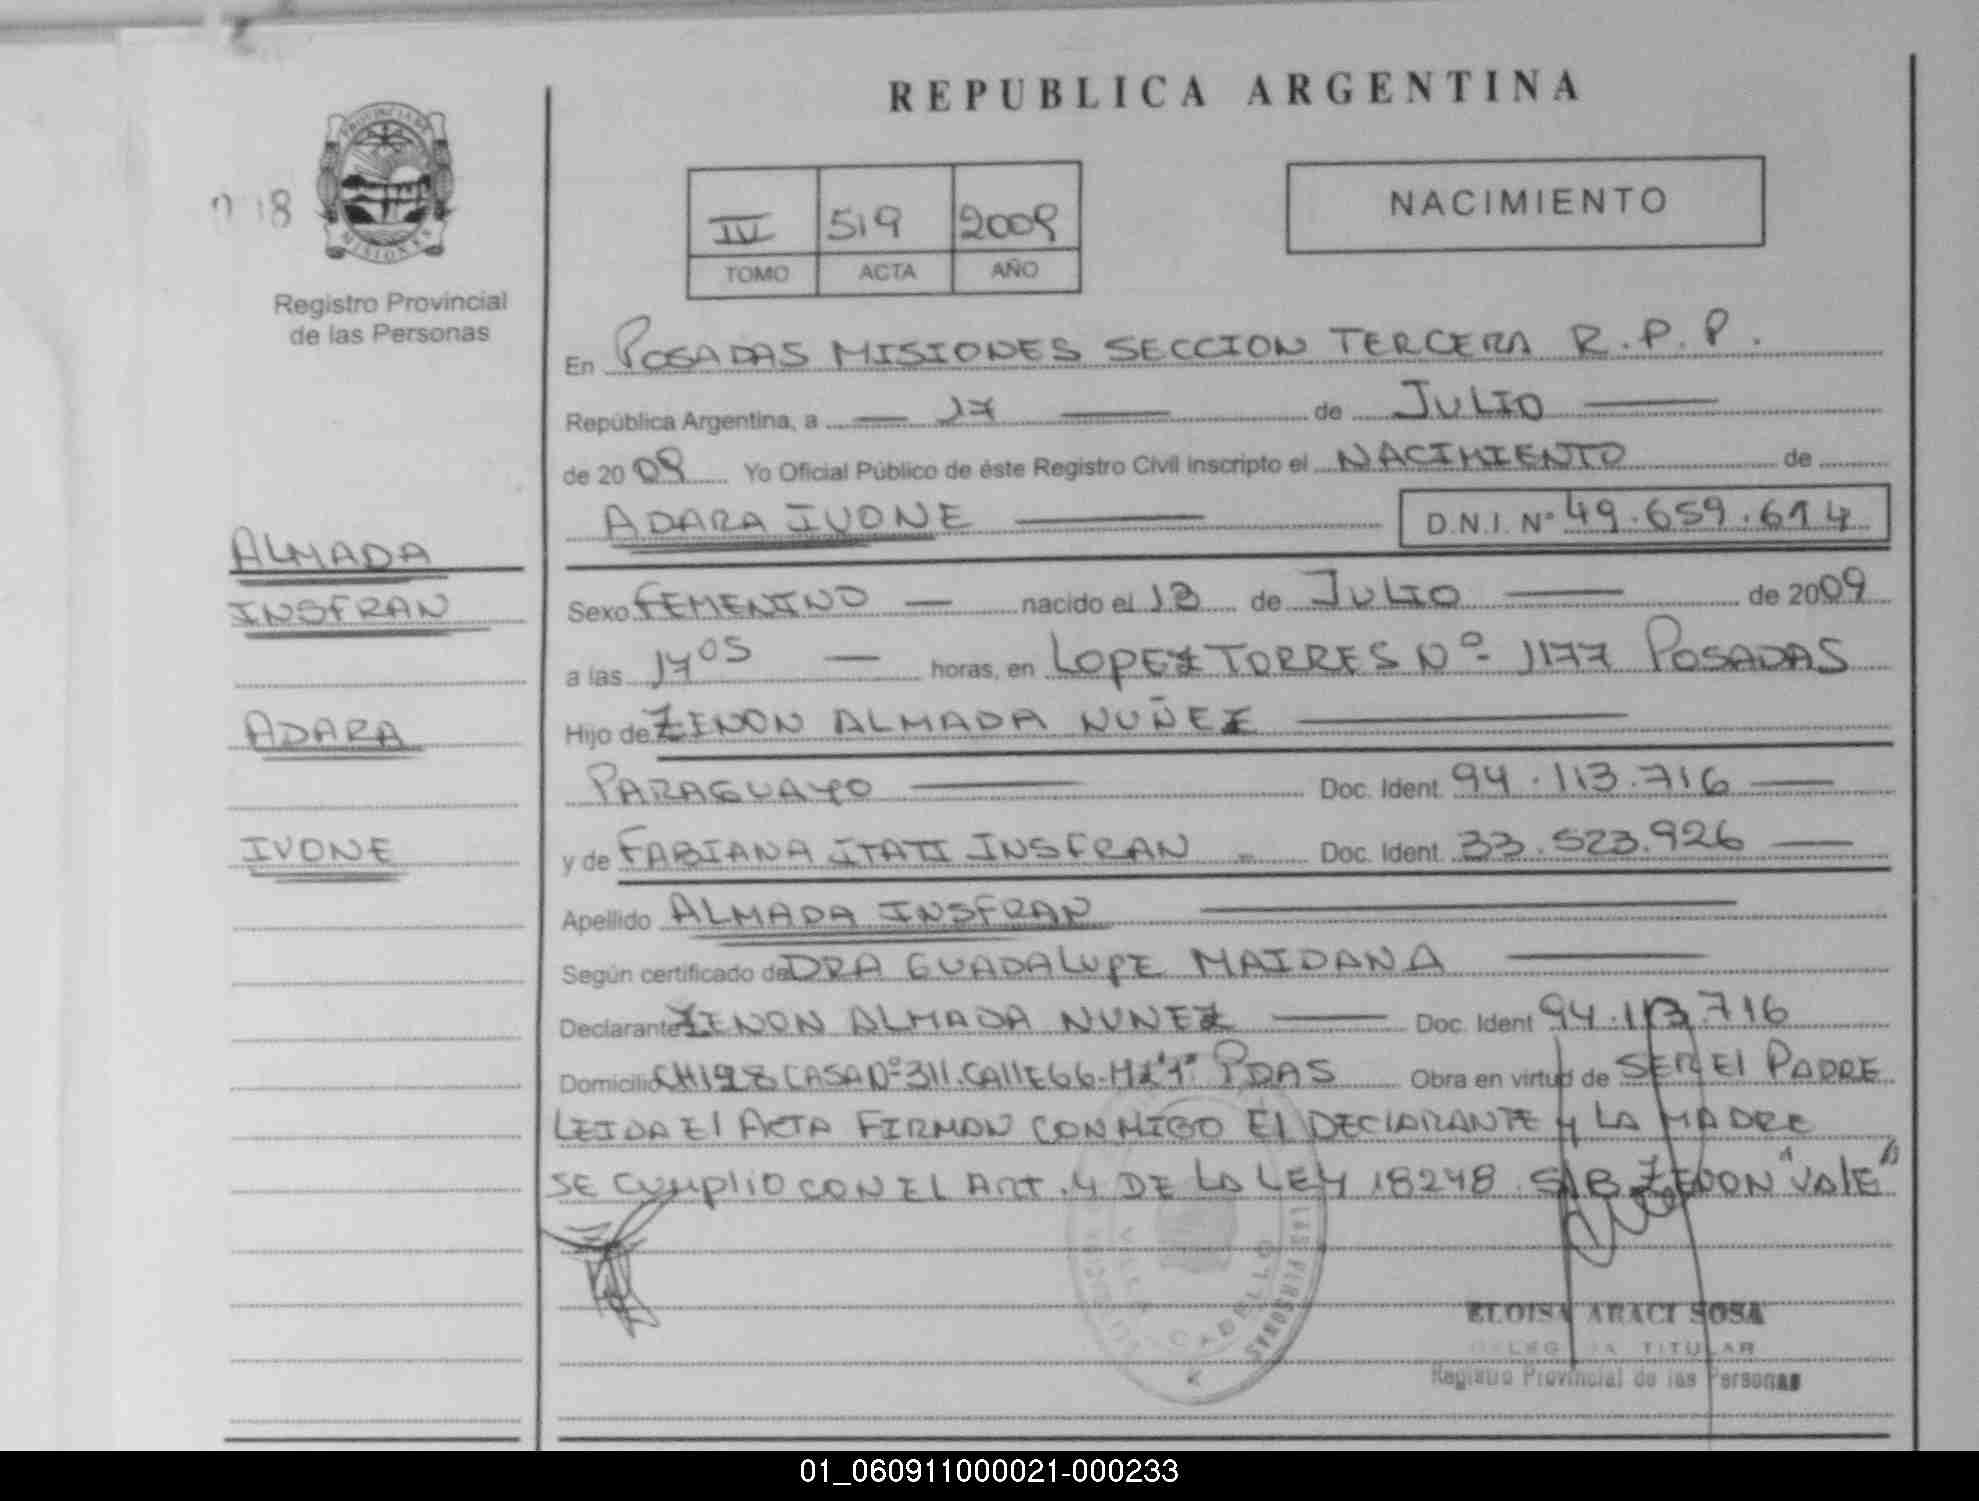 REPUBLICA ARGENTINA
PROVINCIA DE
MISIONES
Registro Provincial
de las Personas
III 519 2009
TOMO ACTA AÑO
NACIMIENTO
En POSADAS MISIONES SECCION TERCERA R.P.P.
República Argentina, a 17 de JULIO
de 2009 Yo Oficial Público de éste Registro Civil inscripto el NACIMIENTO de
ADARA IVONE D.N.I. Nº 49.659.614
ALMADA
INSFRAN
ADARA
IVONE
Sexo FEMENINO nacido el 13 de JULIO de 2009
a las 17 05 horas, en LOPEZ TORRES Nº 1177 POSADAS
Hijo de ZENON ALMADA NUÑEZ
PARAGUAYO Doc. Ident. 94.113.716
y de FABIANA ITATI INSFRAN Doc. Ident. 33.523.926
Apellido ALMADA INSFRAN
Según certificado de DRA GUADALUPE MAIDANA
Declarante ZENON ALMADA NUNEZ Doc. Ident 94.113.716
Domicilio CH198 CASA Nº 311.CALLE 66. PDAS Obra en virtud de SER El PADRE
LEIDA El ACTA FIRMAN CONMIGO El DECLARANTE Y LA MADRE
SE CUMPLIO CON EL ART. 4 DE LA LEY 18248. S/B ZENON "VALE"
LAS PERSONAS
CABELLO
ELOISA ARACI SOSA
TITULAR
Registro Provincial de las Personas
01_060911000021-000233